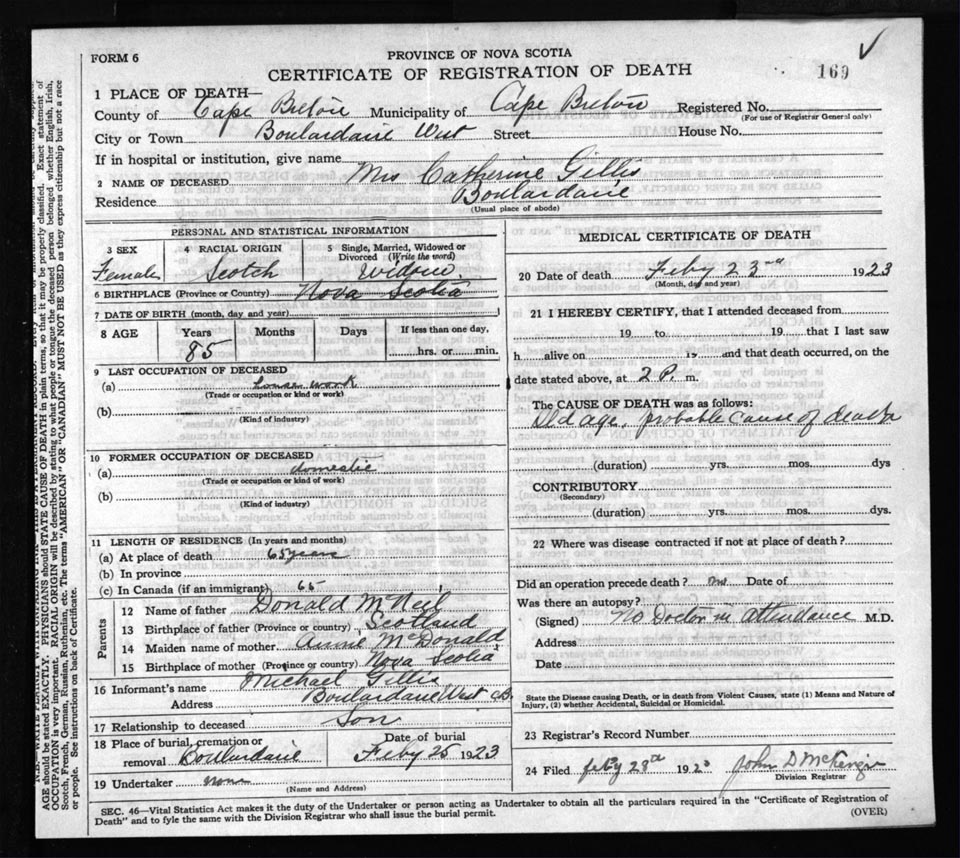 FORM 6
PROVINCE OF NOVA SCOTIA
CERTIFICATE OF REGISTRATION OF DEATH
169
1 PLACE OF DEATH—
County of Cape Breton Municipality of Cape Breton Registered No.
(For use of Registrar General only)
City or Town Boulardarie West Street House No.
If in hospital or institution, give name
2 NAME OF DECEASED Mrs Catherine Gillis
Residence Boulardarie
(Usual place of abode)
PERSONAL AND STATISTICAL INFORMATION
3 SEX 4 RACIAL ORIGIN 5 Single, Married, Widowed or Divorced (Write the word)
Female Scotch Widow
6 BIRTHPLACE (Province or Country) Nova Scotia
7 DATE OF BIRTH (month, day and year)
8 AGE Years Months Days If less than one day,
85 hrs. or min.
9 LAST OCCUPATION OF DECEASED
(a) house work
(Trade or occupation or kind or work)
(b)
(Kind of industry)
10 FORMER OCCUPATION OF DECEASED
(a) domestic
(Trade or occupation or kind of work)
(b)
(Kind of industry)
11 LENGTH OF RESIDENCE (In years and months)
(a) At place of death 65 years
(b) In province
(c) In Canada (if an immigrant) 65
Parents
12 Name of father Donald McNeil
13 Birthplace of father (Province or country) Scotland
14 Maiden name of mother Annie McDonald
15 Birthplace of mother (Province or country) Nova Scotia
16 Informant's name Michael Gillis
Address Boulardarie West C.B.
17 Relationship to deceased Son
18 Place of burial, cremation or Date of burial
removal Boulardarie Feby 25 1923
19 Undertaker none
(Name and Address)
MEDICAL CERTIFICATE OF DEATH
20 Date of death Feby 23rd 1923
(Month, day and year)
21 I HEREBY CERTIFY, that I attended deceased from
19 to 19 that I last saw
h alive on 19 and that death occurred, on the
date stated above, at 2 P. m.
The CAUSE OF DEATH was as follows:
Old age, probable cause of death
(duration) yrs. mos. dys
CONTRIBUTORY
(Secondary)
(duration) yrs. mos. dys.
22 Where was disease contracted if not at place of death?
Did an operation precede death? no Date of
Was there an autopsy?
(Signed) No Doctor in attendance M.D.
Address
Date
State the Disease causing Death, or in death from Violent Causes, state (1) Means and Nature of
Injury, (2) whether Accidental, Suicidal or Homicidal.
23 Registrar's Record Number
24 Filed Feby 192 John D McKenzie
Division Registrar
SEC. 46—Vital Statistics Act makes it the duty of the Undertaker or person acting as Undertaker to obtain all the particulars required in the "Certificate of Registration of
Death" and to fyle the same with the Division Registrar who shall issue the burial permit. (OVER)
AGE should be stated EXACTLY. PHYSICIANS should STATE CAUSE OF DEATH in plain terms, so that it may be properly classified. Exact statement of
OCCUPATION is very important. RACIAL ORIGIN will be described by stating to what people or tongue the deceased person belonged whether English, Irish,
Scotch, French, German, Russian, Ruthenian, etc. The terms "AMERICAN" OR "CANADIAN" MUST NOT BE USED as they express citizenship but not a race
or people. See instructions on back of Certificate.